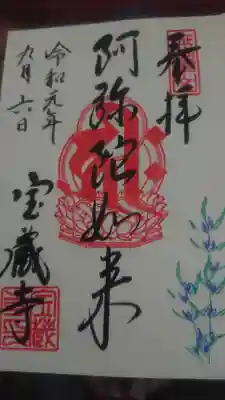 奉拝
阿弥陀如来
令和元年
九月十六日
宝蔵寺